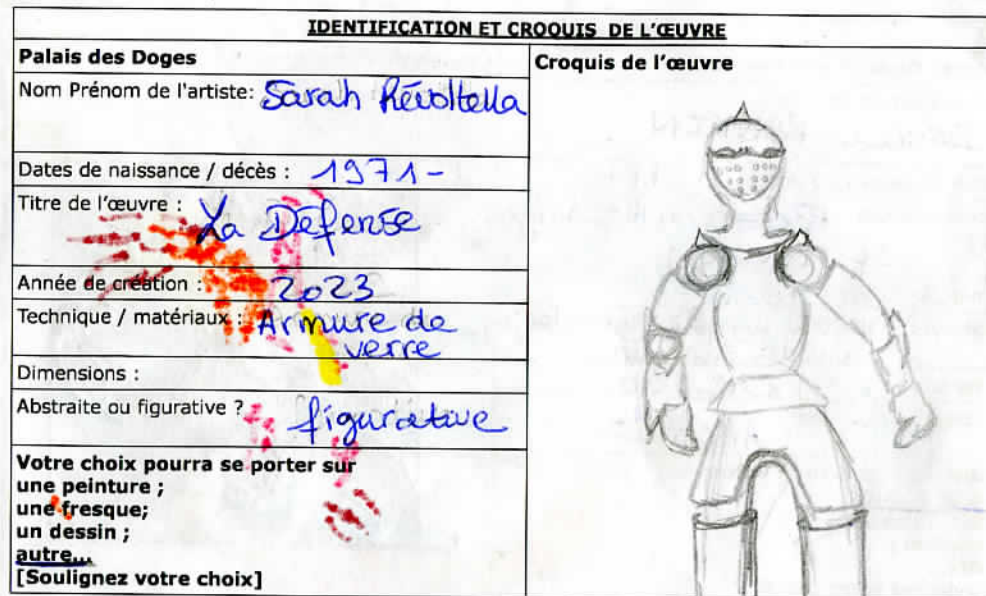 IDENTIFICATION ET CROQUIS DE L'ŒUVRE
Palais des Doges
Nom Prénom de l'artiste: Sarah Révoltella
Dates de naissance / décès : 1971-
Titre de l'œuvre : La Défense
Année de création : 2023
Technique / matériaux : Armure de
verre
Dimensions :
Abstraite ou figurative ? figurative
Votre choix pourra se porter sur
une peinture ;
une fresque;
un dessin ;
autre...
[Soulignez votre choix]
Croquis de l'œuvre